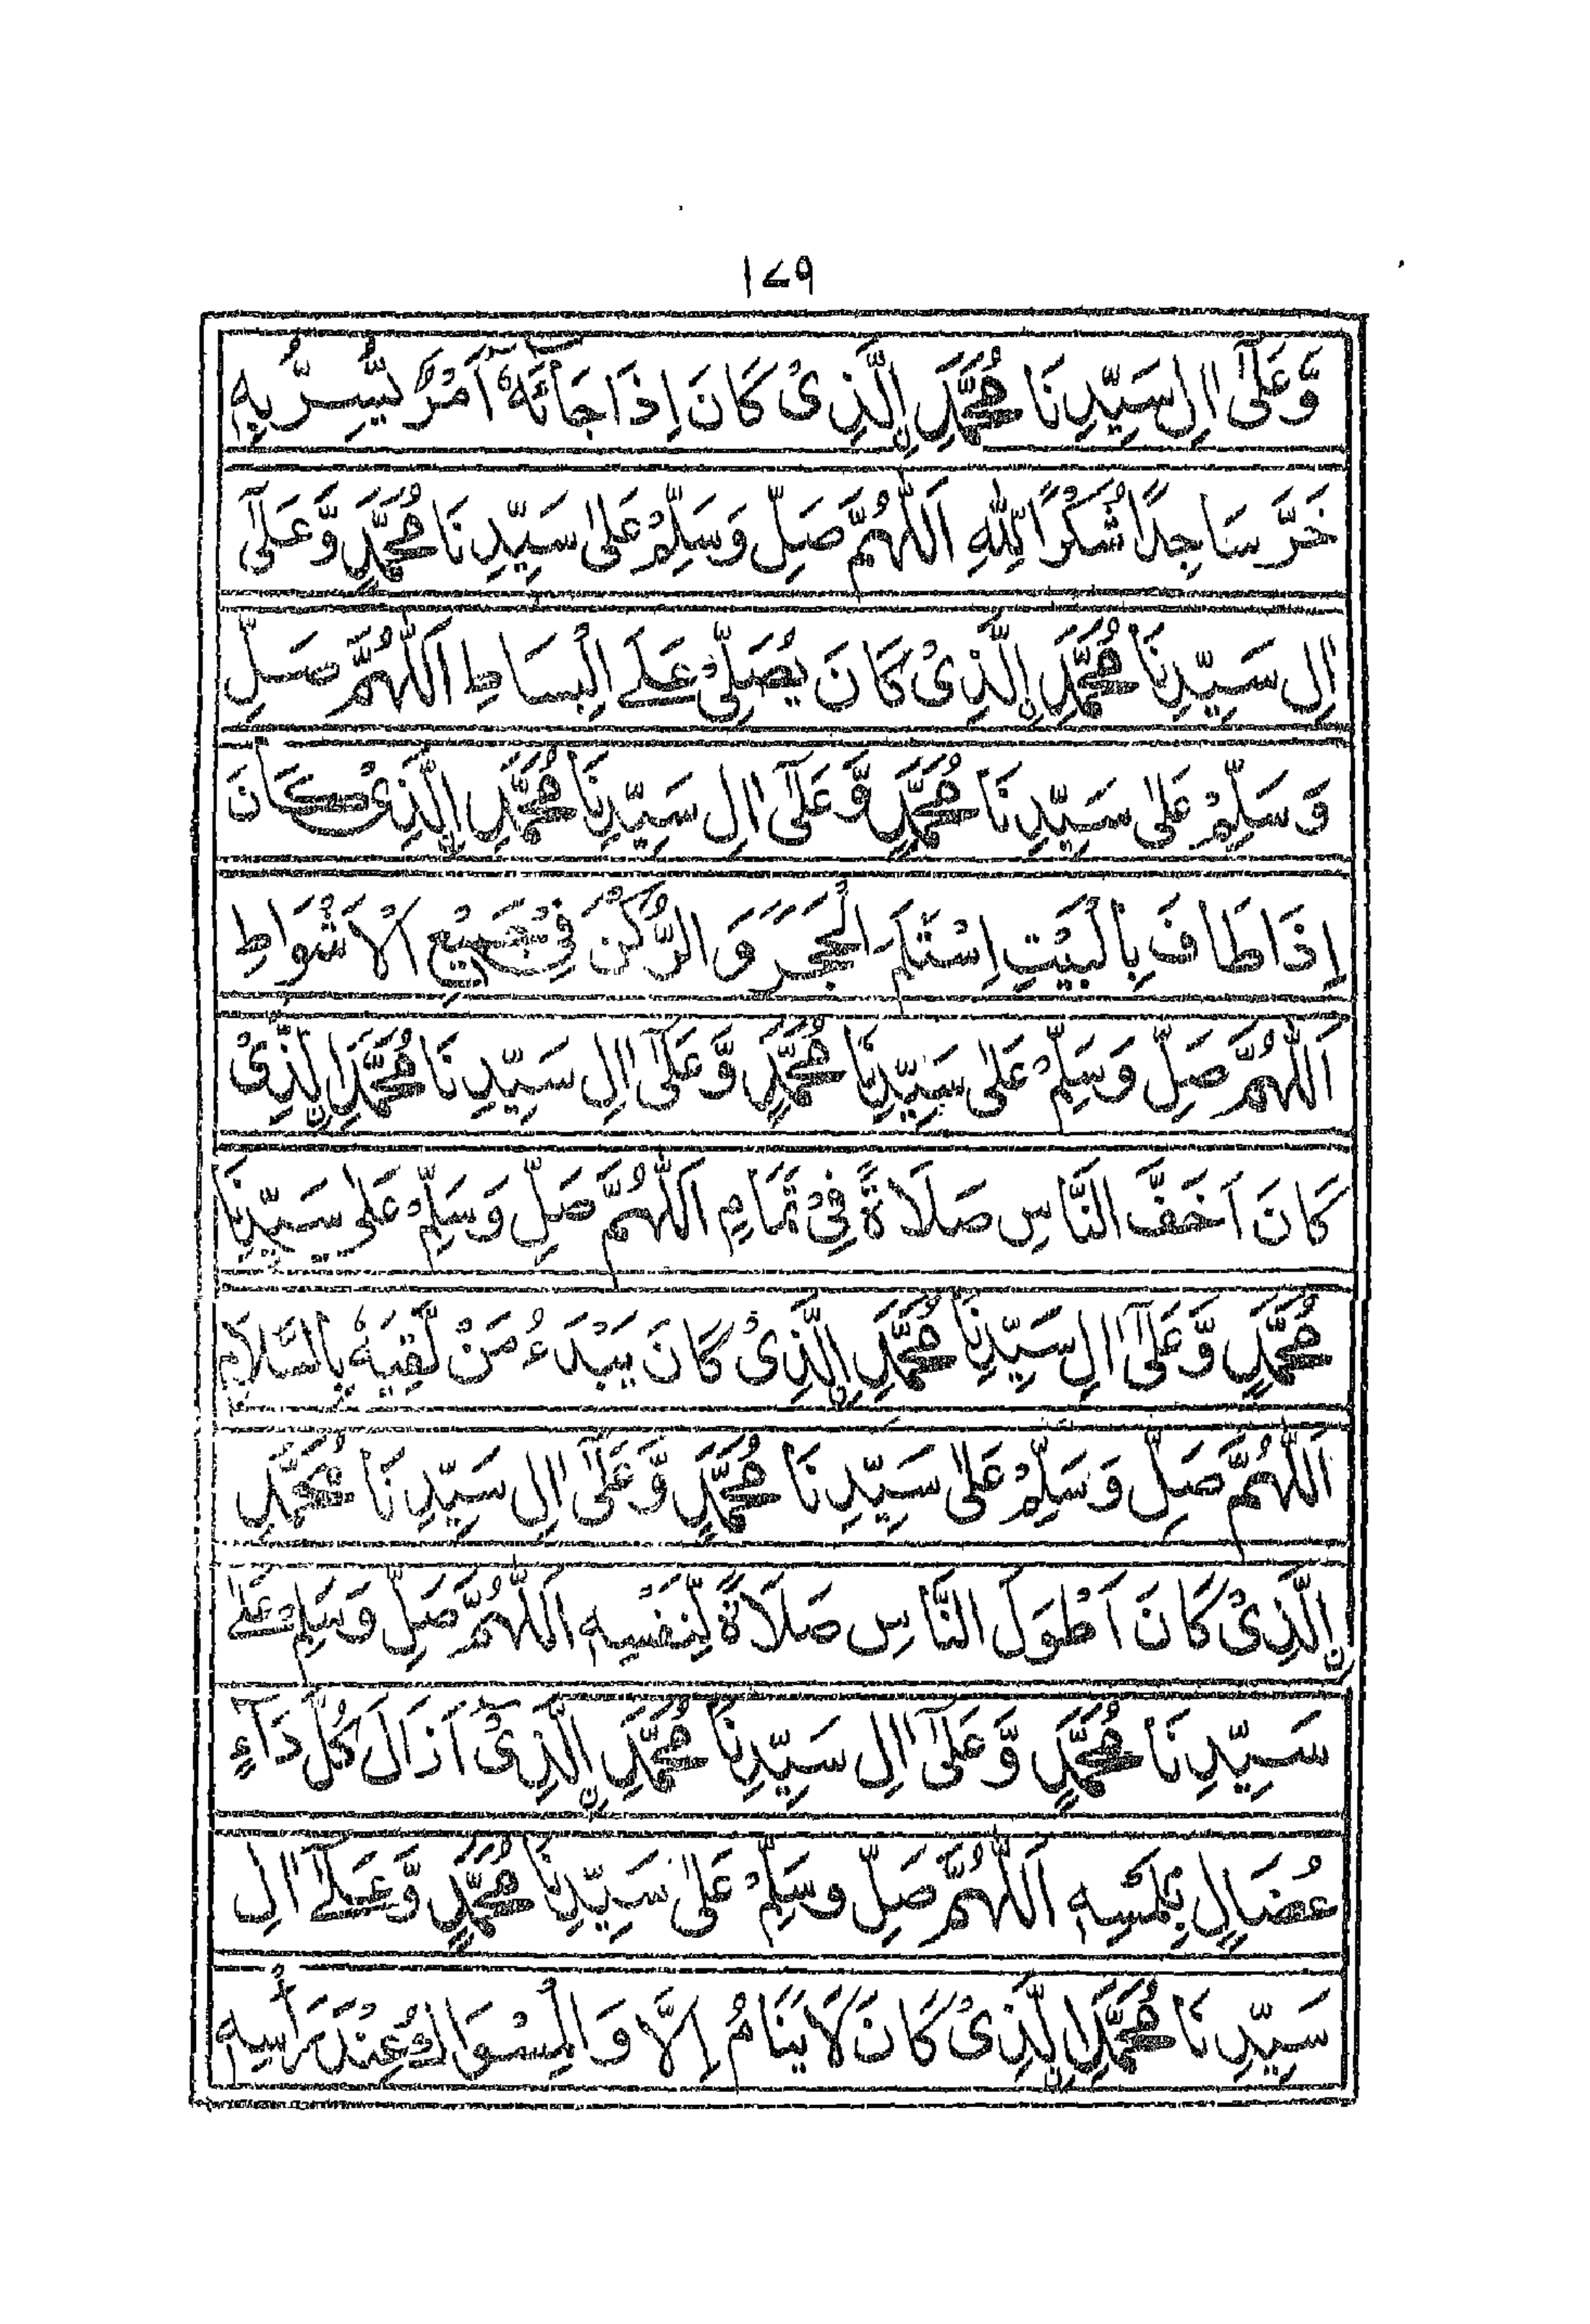 ۱۷۹
وَّعَلٰٓى اٰلِ سَيِّدِنَا مُحَمَّدِ نِ الَّذِىْ كَانَ اِذَا جَآئَهٗٓ اَمْرٌ يُّسِرُّ بِهٖ
خَرَّ سَاجِدًا شُكْرًا لِّلّٰهِ اَللّٰهُمَّ صَلِّ وَسَلِّمْ عَلٰى سَيِّدِنَا مُحَمَّدٍ وَّعَلٰٓى
اٰلِ سَيِّدِنَا مُحَمَّدِ نِ الَّذِىْ كَانَ يُصَلِّىْ عَلَى الْبِسَاطِ اَللّٰهُمَّ صَلِّ
وَسَلِّمْ عَلٰى سَيِّدِنَا مُحَمَّدٍ وَّعَلٰٓى اٰلِ سَيِّدِنَا مُحَمَّدِ نِ الَّذِىْ كَانَ
اِذَا طَافَ بِالْبَيْتِ اِسْتَلَمَ الْحَجَرَ وَ الرُّكْنَ فِىْ جَمِيْعِ الْاَشْوَاطِ
اَللّٰهُمَّ صَلِّ وَسَلِّمْ عَلٰى سَيِّدِنَا مُحَمَّدٍ وَّعَلٰٓى اٰلِ سَيِّدِنَا مُحَمَّدِ نِ الَّذِىْ
كَانَ اَخَفَّ النَّاسِ صَلَاةً فِىْ تَمَامٍ اَللّٰهُمَّ صَلِّ وَسَلِّمْ عَلٰى سَيِّدِنَا
مُحَمَّدٍ وَّعَلٰٓى اٰلِ سَيِّدِنَا مُحَمَّدِ نِ الَّذِىْ كَانَ يَبْدَءُ مَنْ لَّقِيَهٗ بِالسَّلَامِ
اَللّٰهُمَّ صَلِّ وَسَلِّمْ عَلٰى سَيِّدِنَا مُحَمَّدٍ وَّعَلٰٓى اٰلِ سَيِّدِنَا مُحَمَّدِ
نِ الَّذِىْ كَانَ اَطْوَلَ النَّاسِ صَلَاةً لِّنَفْسِهٖ اَللّٰهُمَّ صَلِّ وَسَلِّمْ عَلٰى
سَيِّدِنَا مُحَمَّدٍ وَّعَلٰٓى اٰلِ سَيِّدِنَا مُحَمَّدِ نِ الَّذِىْٓ اَزَالَ كُلَّ دَآءٍ
عُضَالٍ بِلَمْسِهٖ اَللّٰهُمَّ صَلِّ وسَلِّمْ عَلٰى سَيِّدِنَا مُحَمَّدٍ وَّعَلٰٓى اٰلِ
سَيِّدِنَا مُحَمَّدِ نِ الَّذِىْ كَانَ لَا يَنَامُ اِلَّا وَ الْمِسْوَاكُ عِنْدَ رَأْسِهٖ